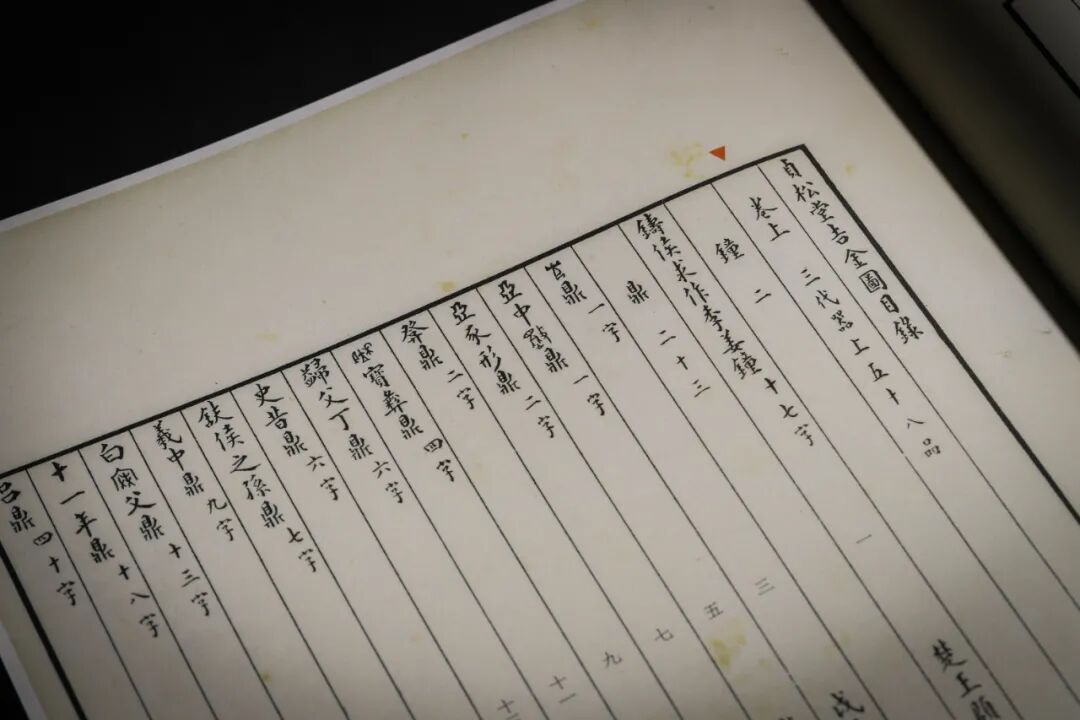 貞松堂吉金圖目錄
卷上 三代器上五十八品
鐘 二
鑄侯求作季姜鐘 十七字 一
楚王頵
鼎 二十三
鼎 一字 三
亞中鼎 一字 五
亞豕形鼎 二字 七
祭鼎 二字 九
寶彝鼎 四字 十一
父丁鼎 六字
史昔鼎 六字
鈇侯之孫鼎 七字
義中鼎 九字
白父鼎 十三字
十一年鼎 十八字
呂鼎 四十字